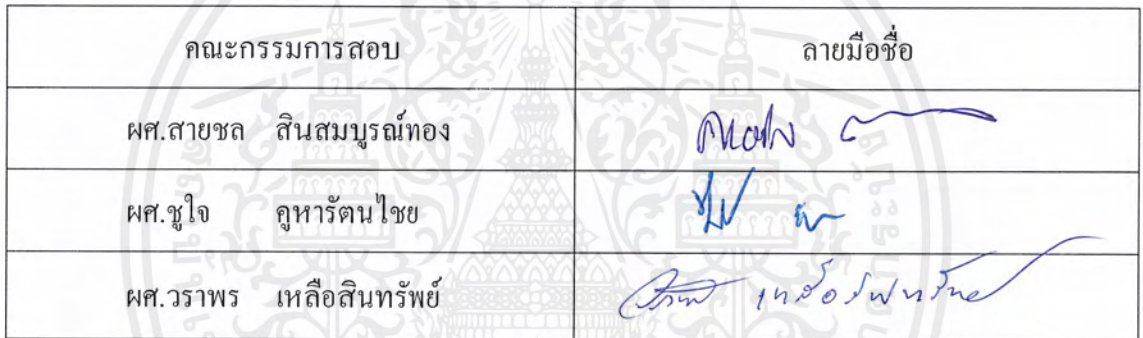 คณะกรรมการสอบ ลายมือชื่อ
ผศ.สายชล สินสมบูรณ์ทอง
ผศ.ชูใจ คูหารัตนไชย
ผศ.วราพร เหลือสินทรัพย์ วราพร เหลือสินทรัพย์